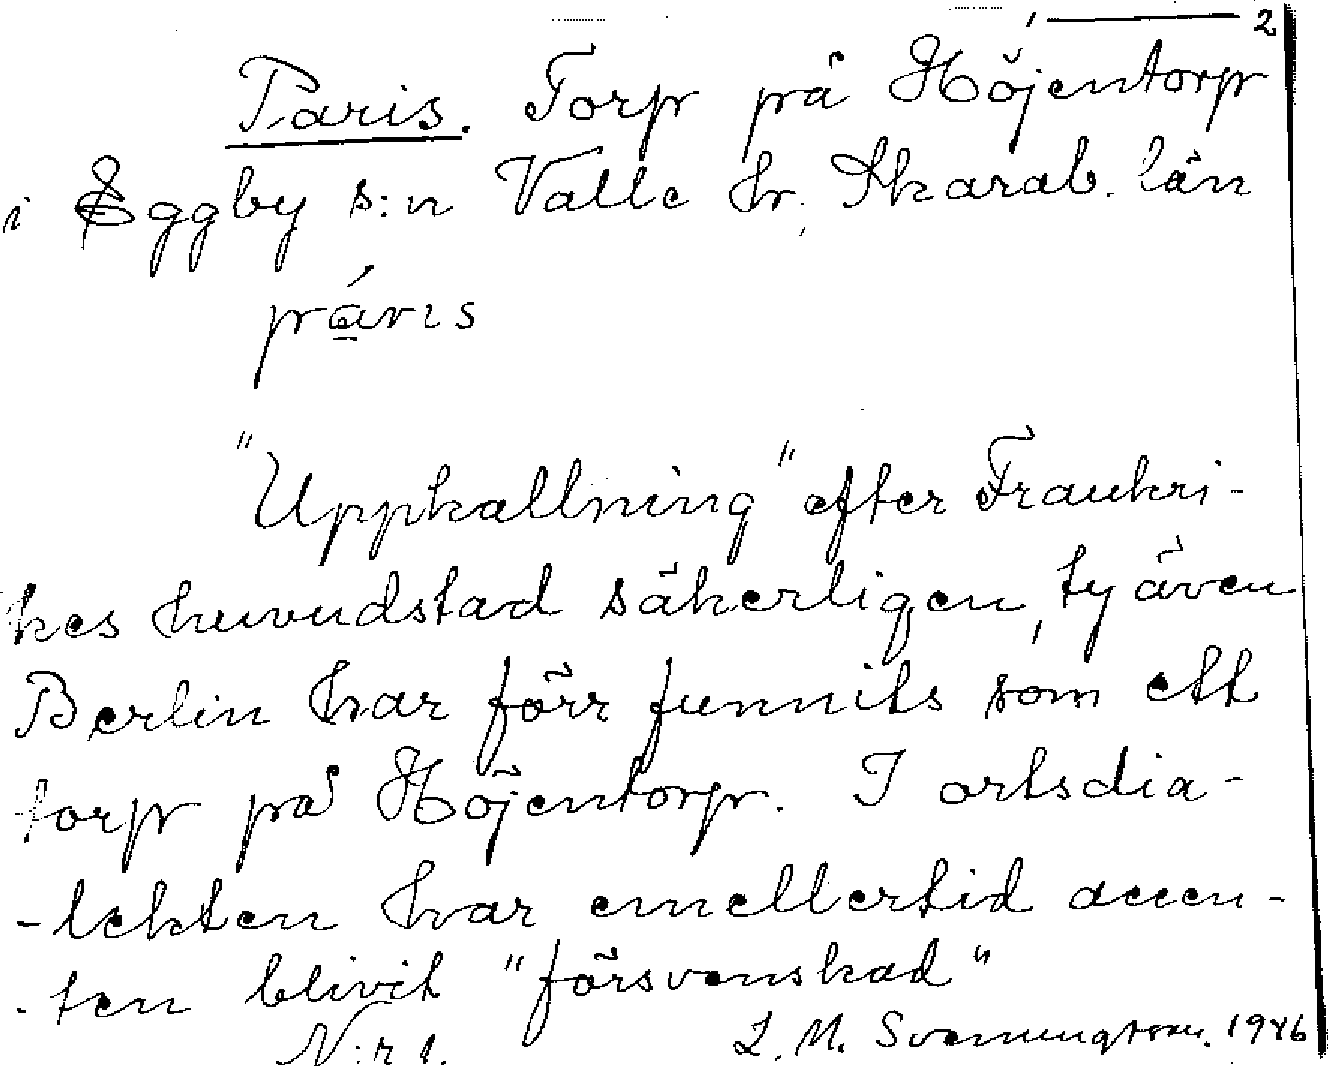 1 — 2
Paris. Torp på Höjentorp
i Eggby s:n Valle hr. Skarab. län
pár̲ıs
"Uppkallning" efter Frankri-
kes huvudstad säkerligen, ty även
Berlin har förr funnits som ett
torp på Höjentorp. I ortsdia-
-lekten har emellertid accen-
-ten blivit "försvenskad"
N:r 1. L. M. Svenungsson. 1946